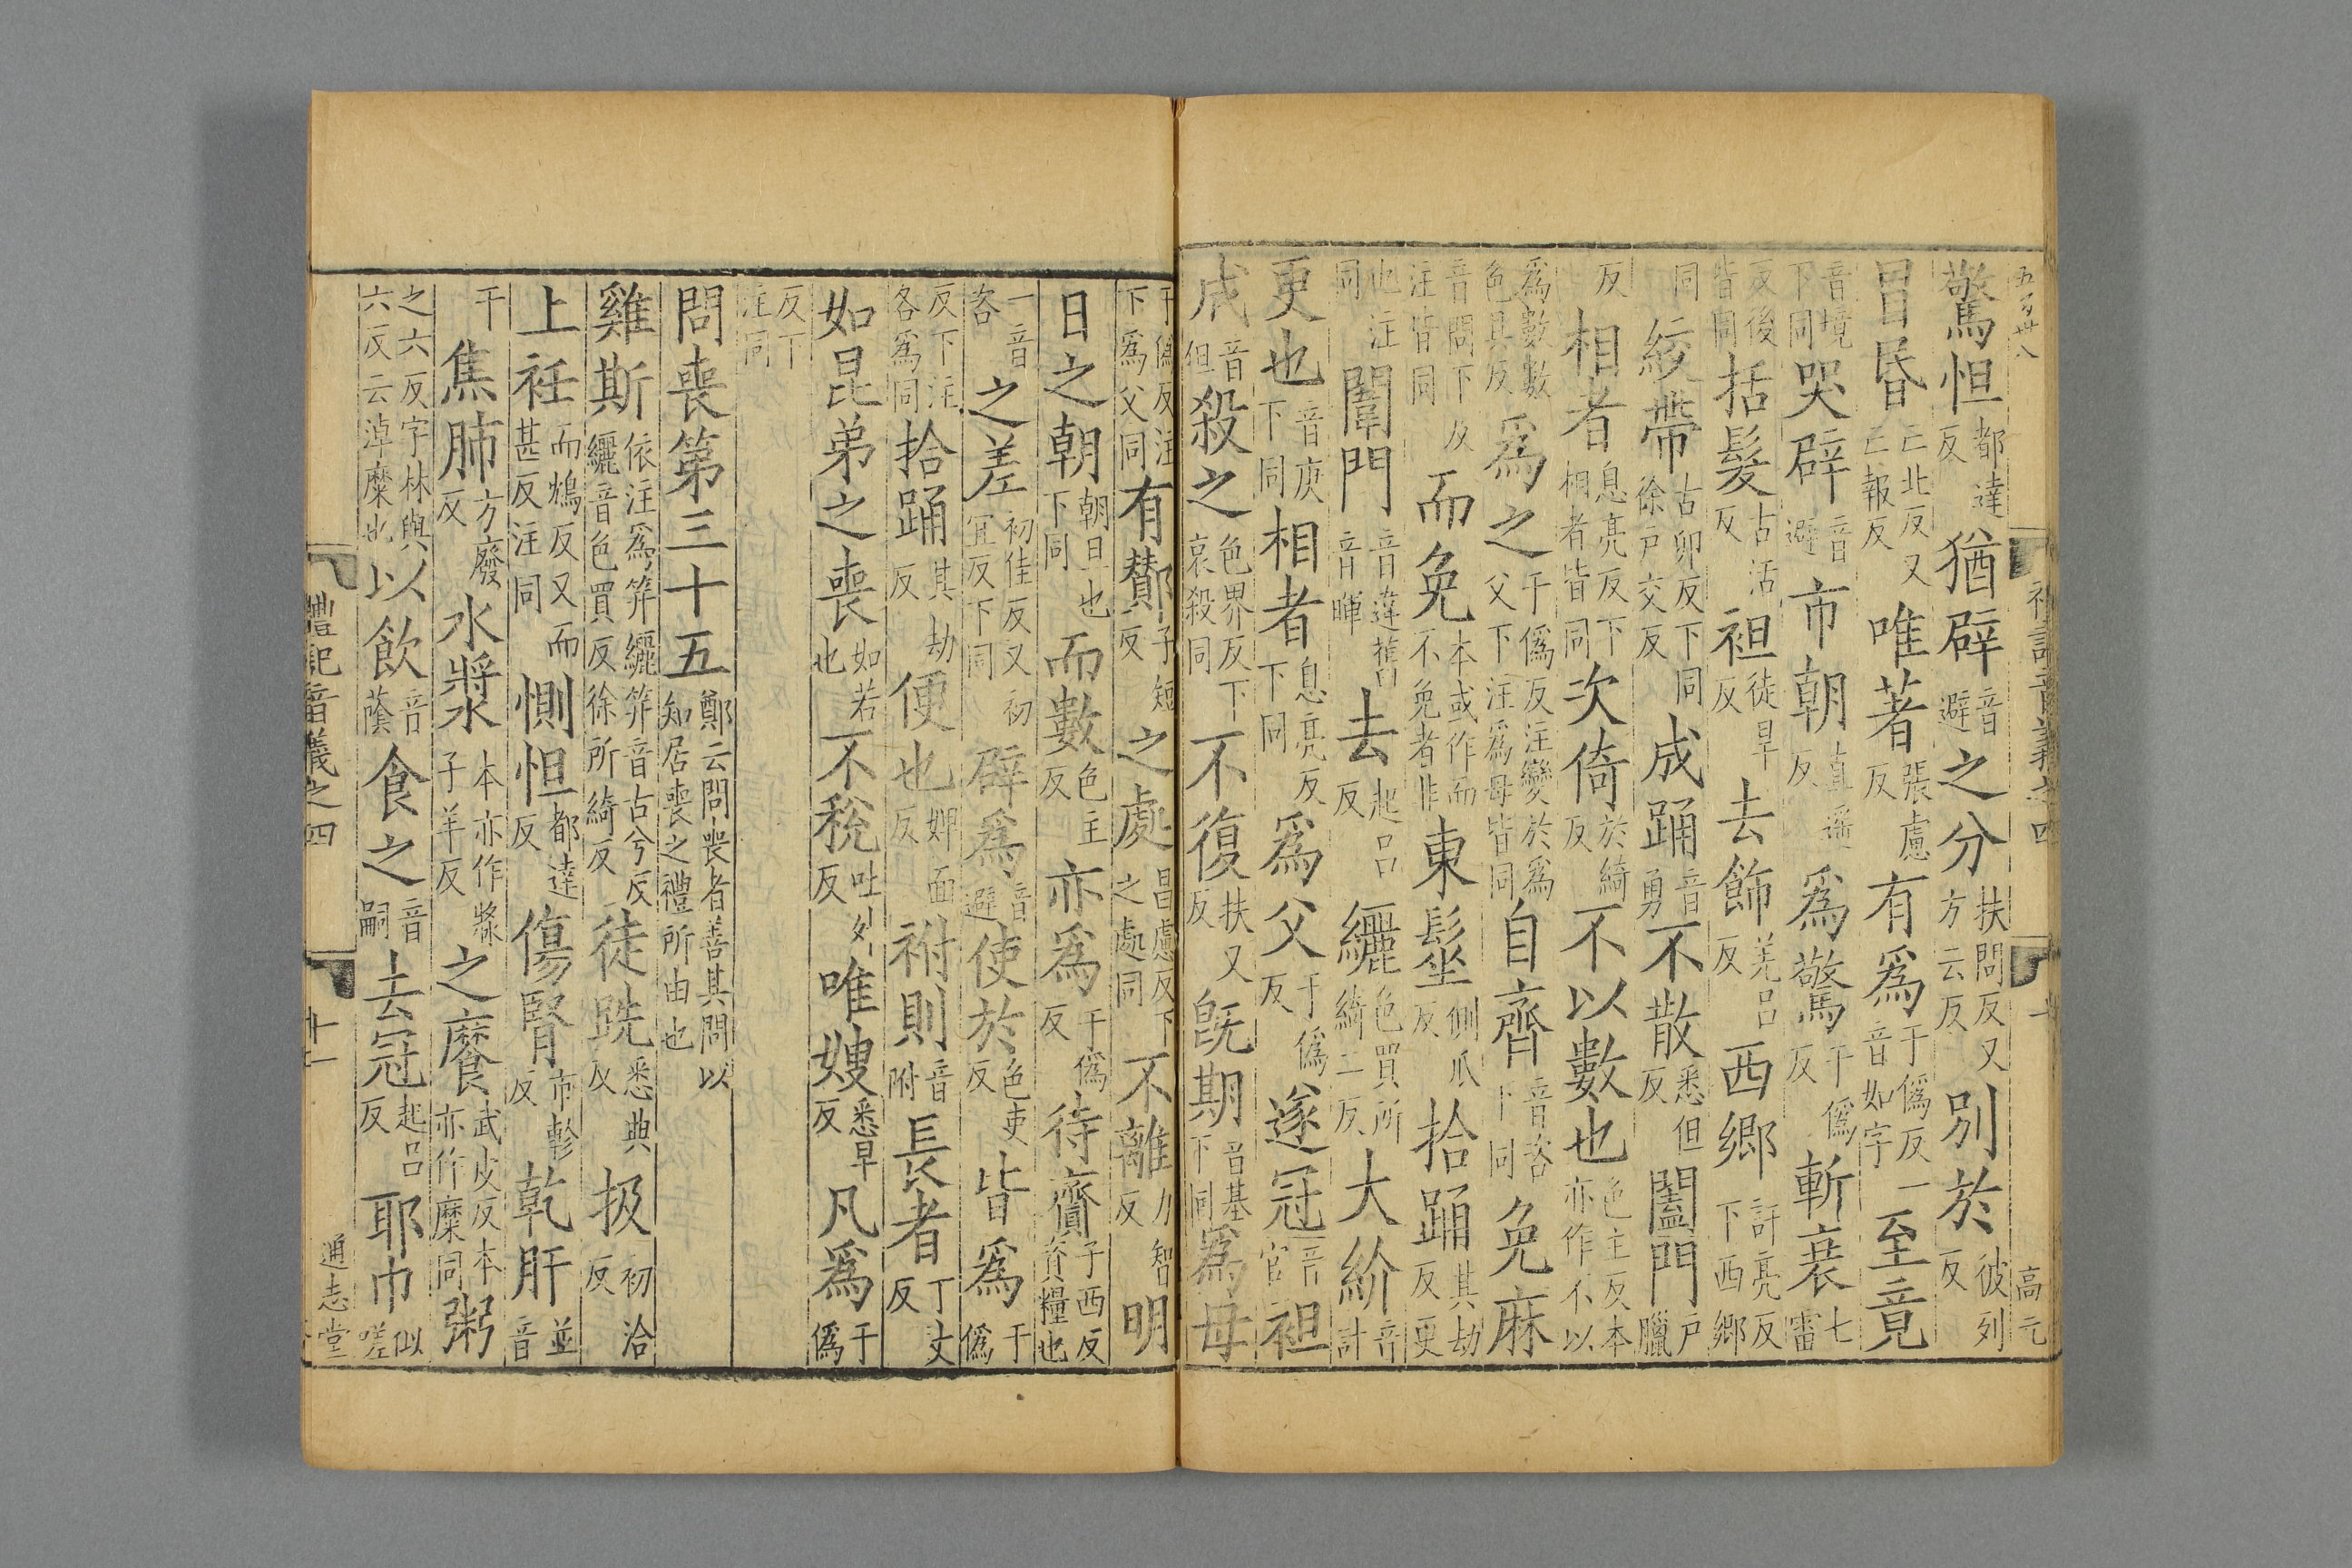 五百卅八
禮記音義之四
高元
驚怛都達反猶辟音避之分扶問反又方云反別於彼列反
冒昏亡北反又亡報反唯著張慮反有爲于僞反一音如字至竟
音境下同哭辟音避市朝直遥反爲驚于僞反斬衰七雷
反後皆同括髮古活反袒徒旱反去飾羌呂反西鄉許亮反下西鄉
同絞帶古卯反下同徐戶交反成踊音勇不散悉但反闔門戶臘
反相者息亮反下相者皆同次倚於綺反不以數也色主反本亦作不以
爲數數色具反爲之于僞反注變於爲父下注爲母皆同自齊音咨下同免麻
音問下及注皆同而免本或作而不免者非東髽側爪反拾踊其劫反更
也注同闈門音違舊音暉去起呂反纚色買所綺二反大紒音計
更也音庚下同相者息亮反下同爲父于僞反遂冠音官袒
成音但殺之色界反下哀殺同不復扶又反旣期音基下同爲母
于僞反注下爲父同有酇子短反之處昌慮反下之處同不離力智反明
日之朝朝旦也下同而數色主反亦爲于僞反待齎子西反資糧也
一音咨之差初佳反又初宜反下同辟爲音避使於色吏反皆爲于僞
反下注各爲同拾踊其劫反便也婢面反祔則音附長者丁丈反
如昆弟之喪如若也不稅吐外反唯嫂悉早反凡爲于僞
反下注同
問喪第三十五鄭云問喪者善其問以知居喪之禮所由也
雞斯依注爲筓纚筓音古兮反纚音色買反徐所綺反徒跣悉典反扱初洽反
上衽而鴆反又而甚反注同惻怛都達反傷腎市軫反乾肝並音
干焦肺方廢反水漿本亦作漿子羊反之糜武皮反本亦作糜同粥
之六反字林與六反云淖糜也以飲音蔭食之音嗣去冠起呂反耶巾似嗟
禮記音義之四
十一
通志堂